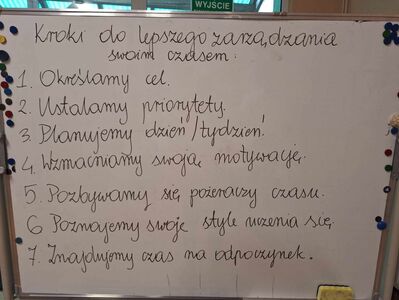 WYJŚCIE
Kroki do lepszego zarządzania
swoim czasem:
1. Określamy cel.
2. Ustalamy priorytety.
3. Planujemy dzień/tydzień.
4. Wzmacniamy swoją motywację.
5. Pozbywamy się pożeraczy czasu.
6 Poznajemy swoje style uczenia się.
7. Znajdujemy czas na odpoczynek.